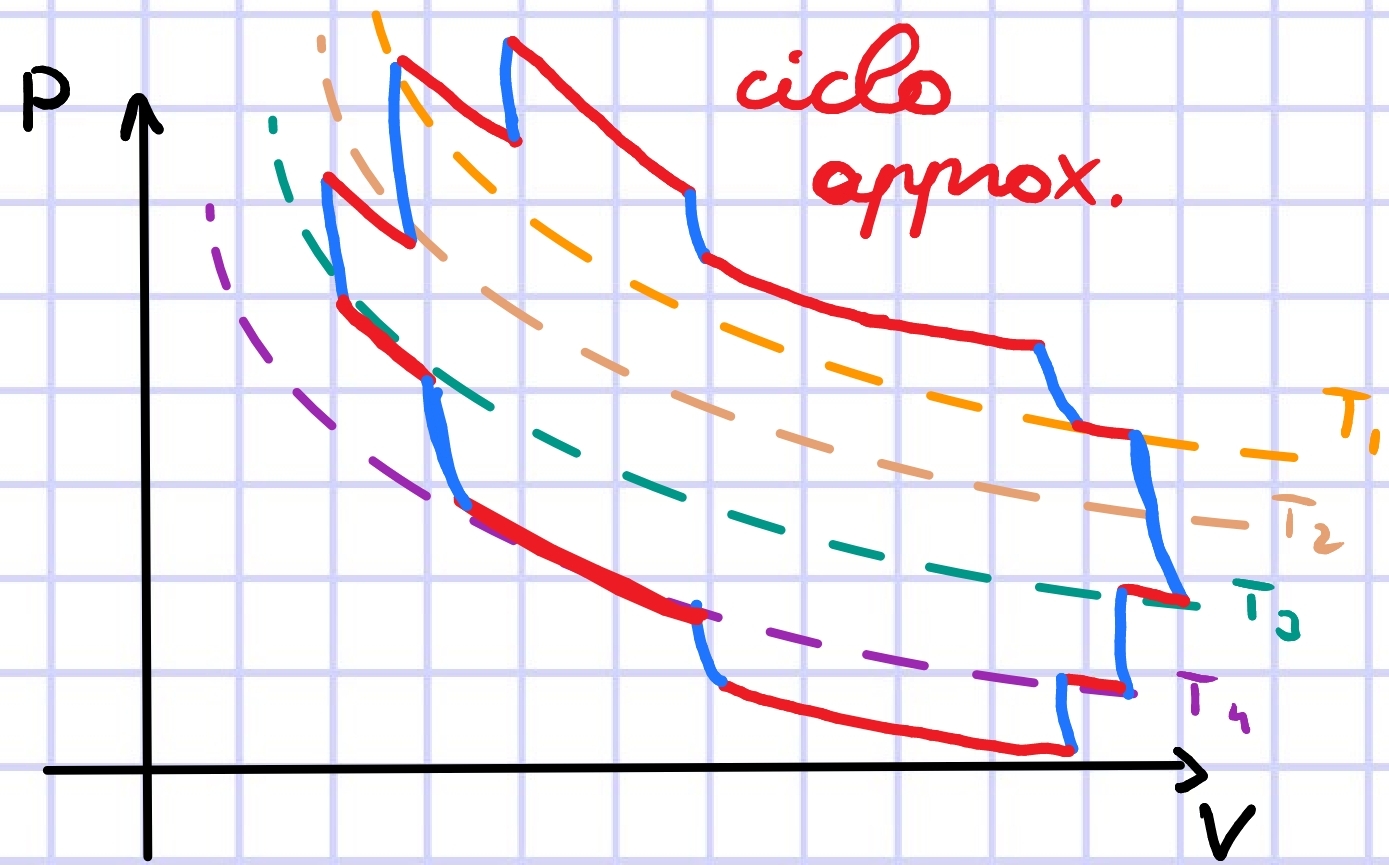 P
ciclo
approx.
T1
T2
T3
T4
V